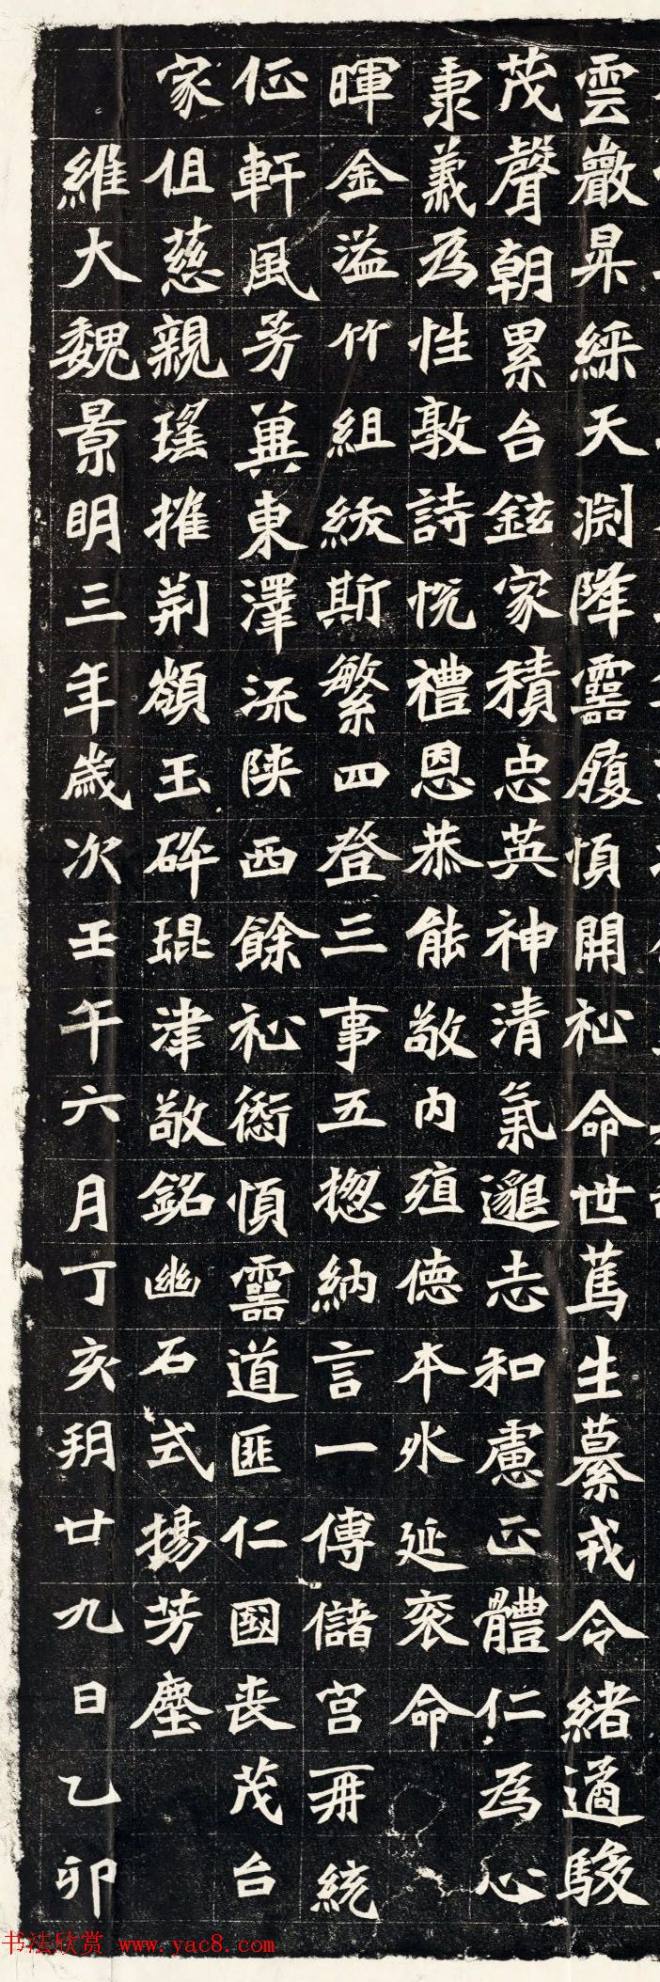 雲巖昇綵天淵降靈履順開祉命世篤生纂戎令緒遹駿
茂聲朝累台鉉家積忠英神清氣邈志和慮正體仁為心
秉義為性敦詩悅禮恩恭能敬內殖德本外延袞命
暉金溢竹組紱斯繁四登三事五揔納言一傅儲宮再統
征軒風芳冀東澤流陝西餘祉愆順靈道匪仁國喪茂台
家徂慈親瑤摧荊額玉碎琨津敬銘幽石式揚芳塵
維大魏景明三年歲次壬午六月丁亥朔廿九日乙卯
书法欣赏 www.yac8.com